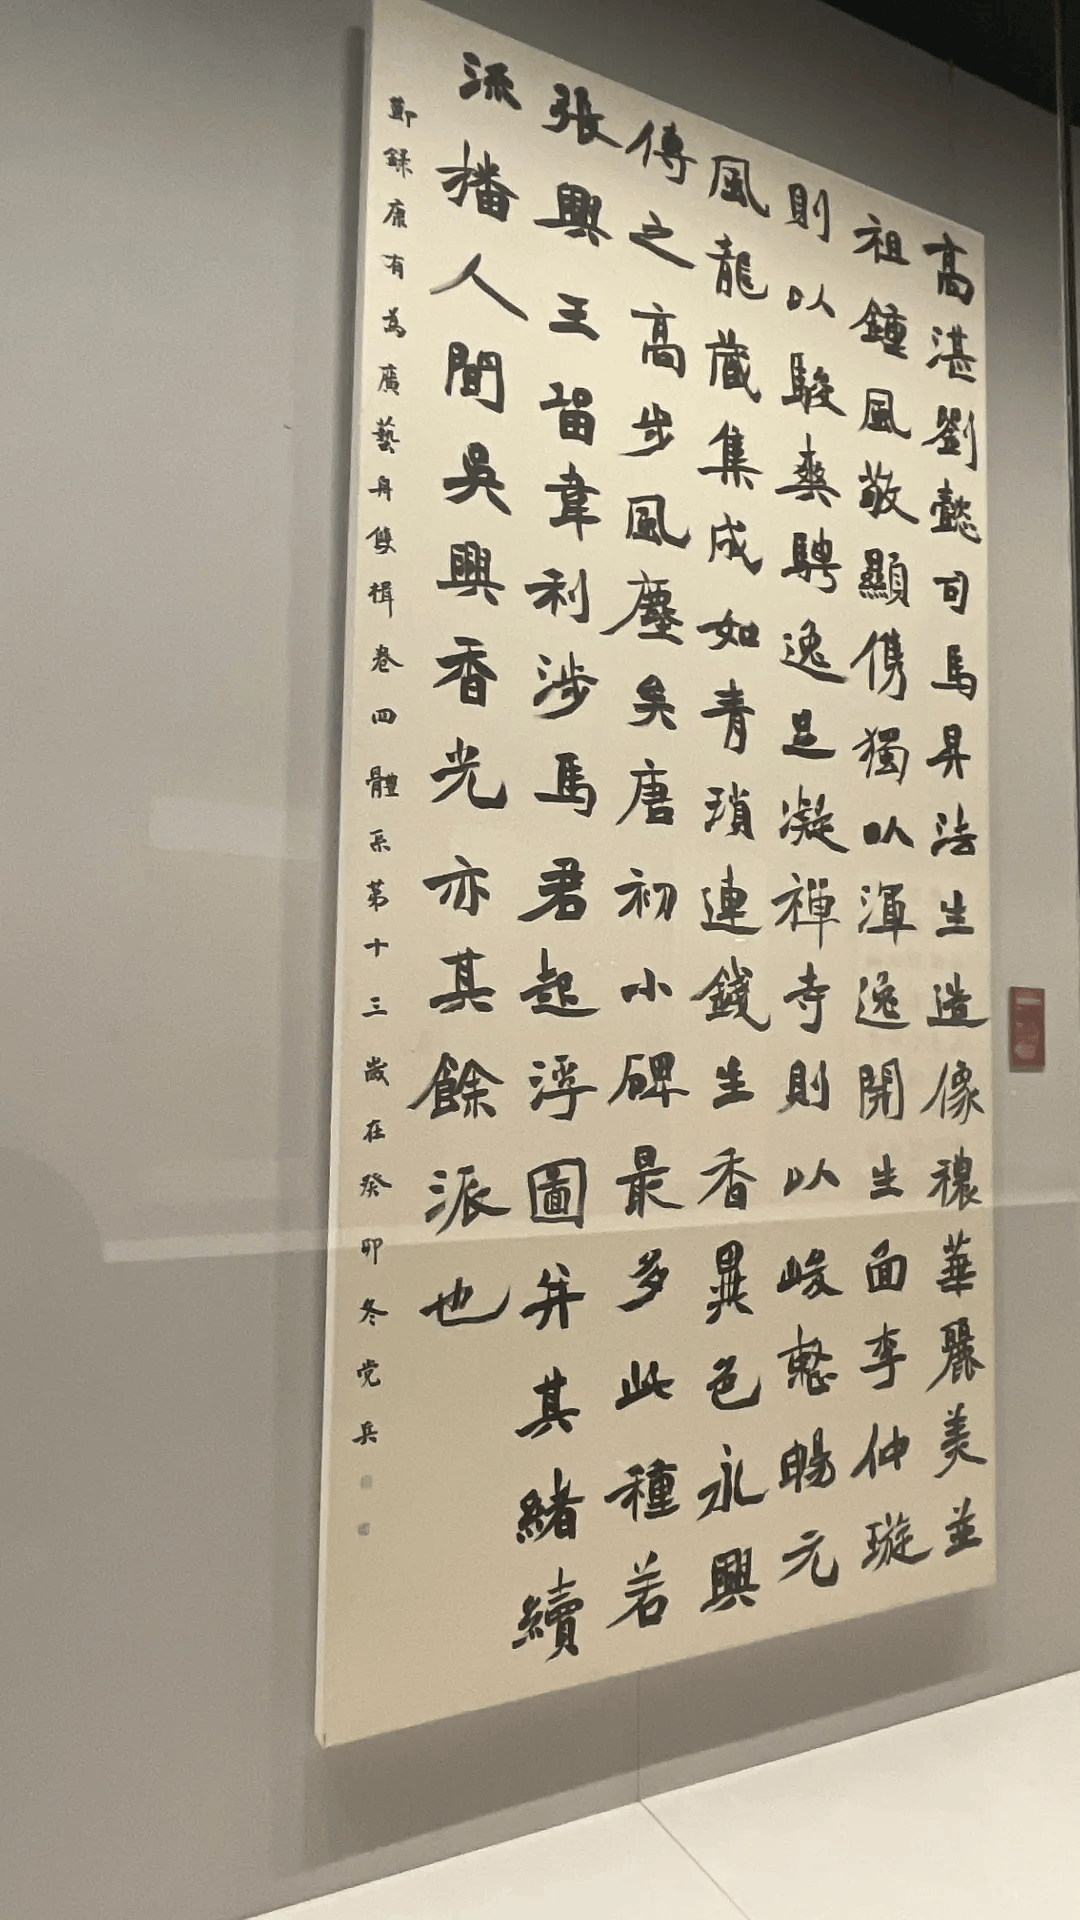 高湛劉懿司馬昇法生造像穠華麗美並
祖鍾風敬顯儁獨以渾逸開生面李仲璇
則以駿爽騁逸足凝禪寺則以峻整暢元
風龍藏集成如青瑣連錢生香異色永興
傳之高步風塵矣唐初小碑最多此種若
張興王留韋利涉馬君起浮圖并其緒續
流播人間吳興香光亦其餘派也
節錄康有為廣藝舟雙楫卷四體系第十三歲在癸卯冬党兵